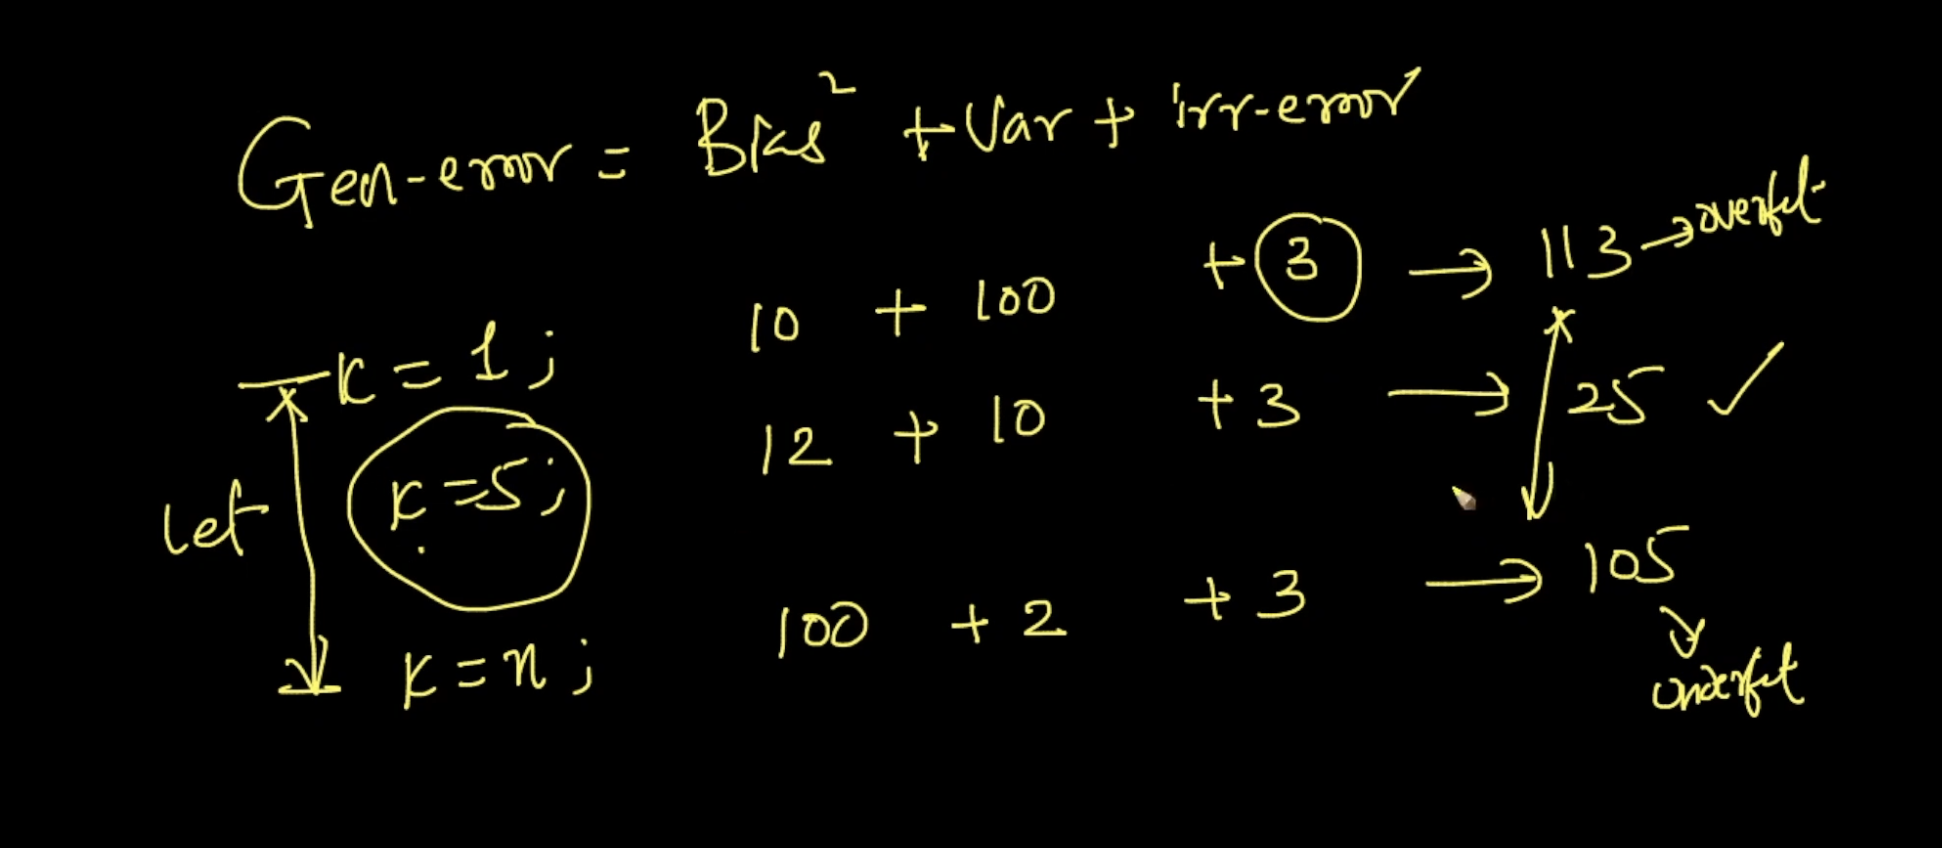 Gen-error = Bias² + Var + irr-error
K = 1; 10 + 100 + 3 → 113 → overfit
Let K = 5; 12 + 10 + 3 → 25 ✓
K = n; 100 + 2 + 3 → 105
underfit